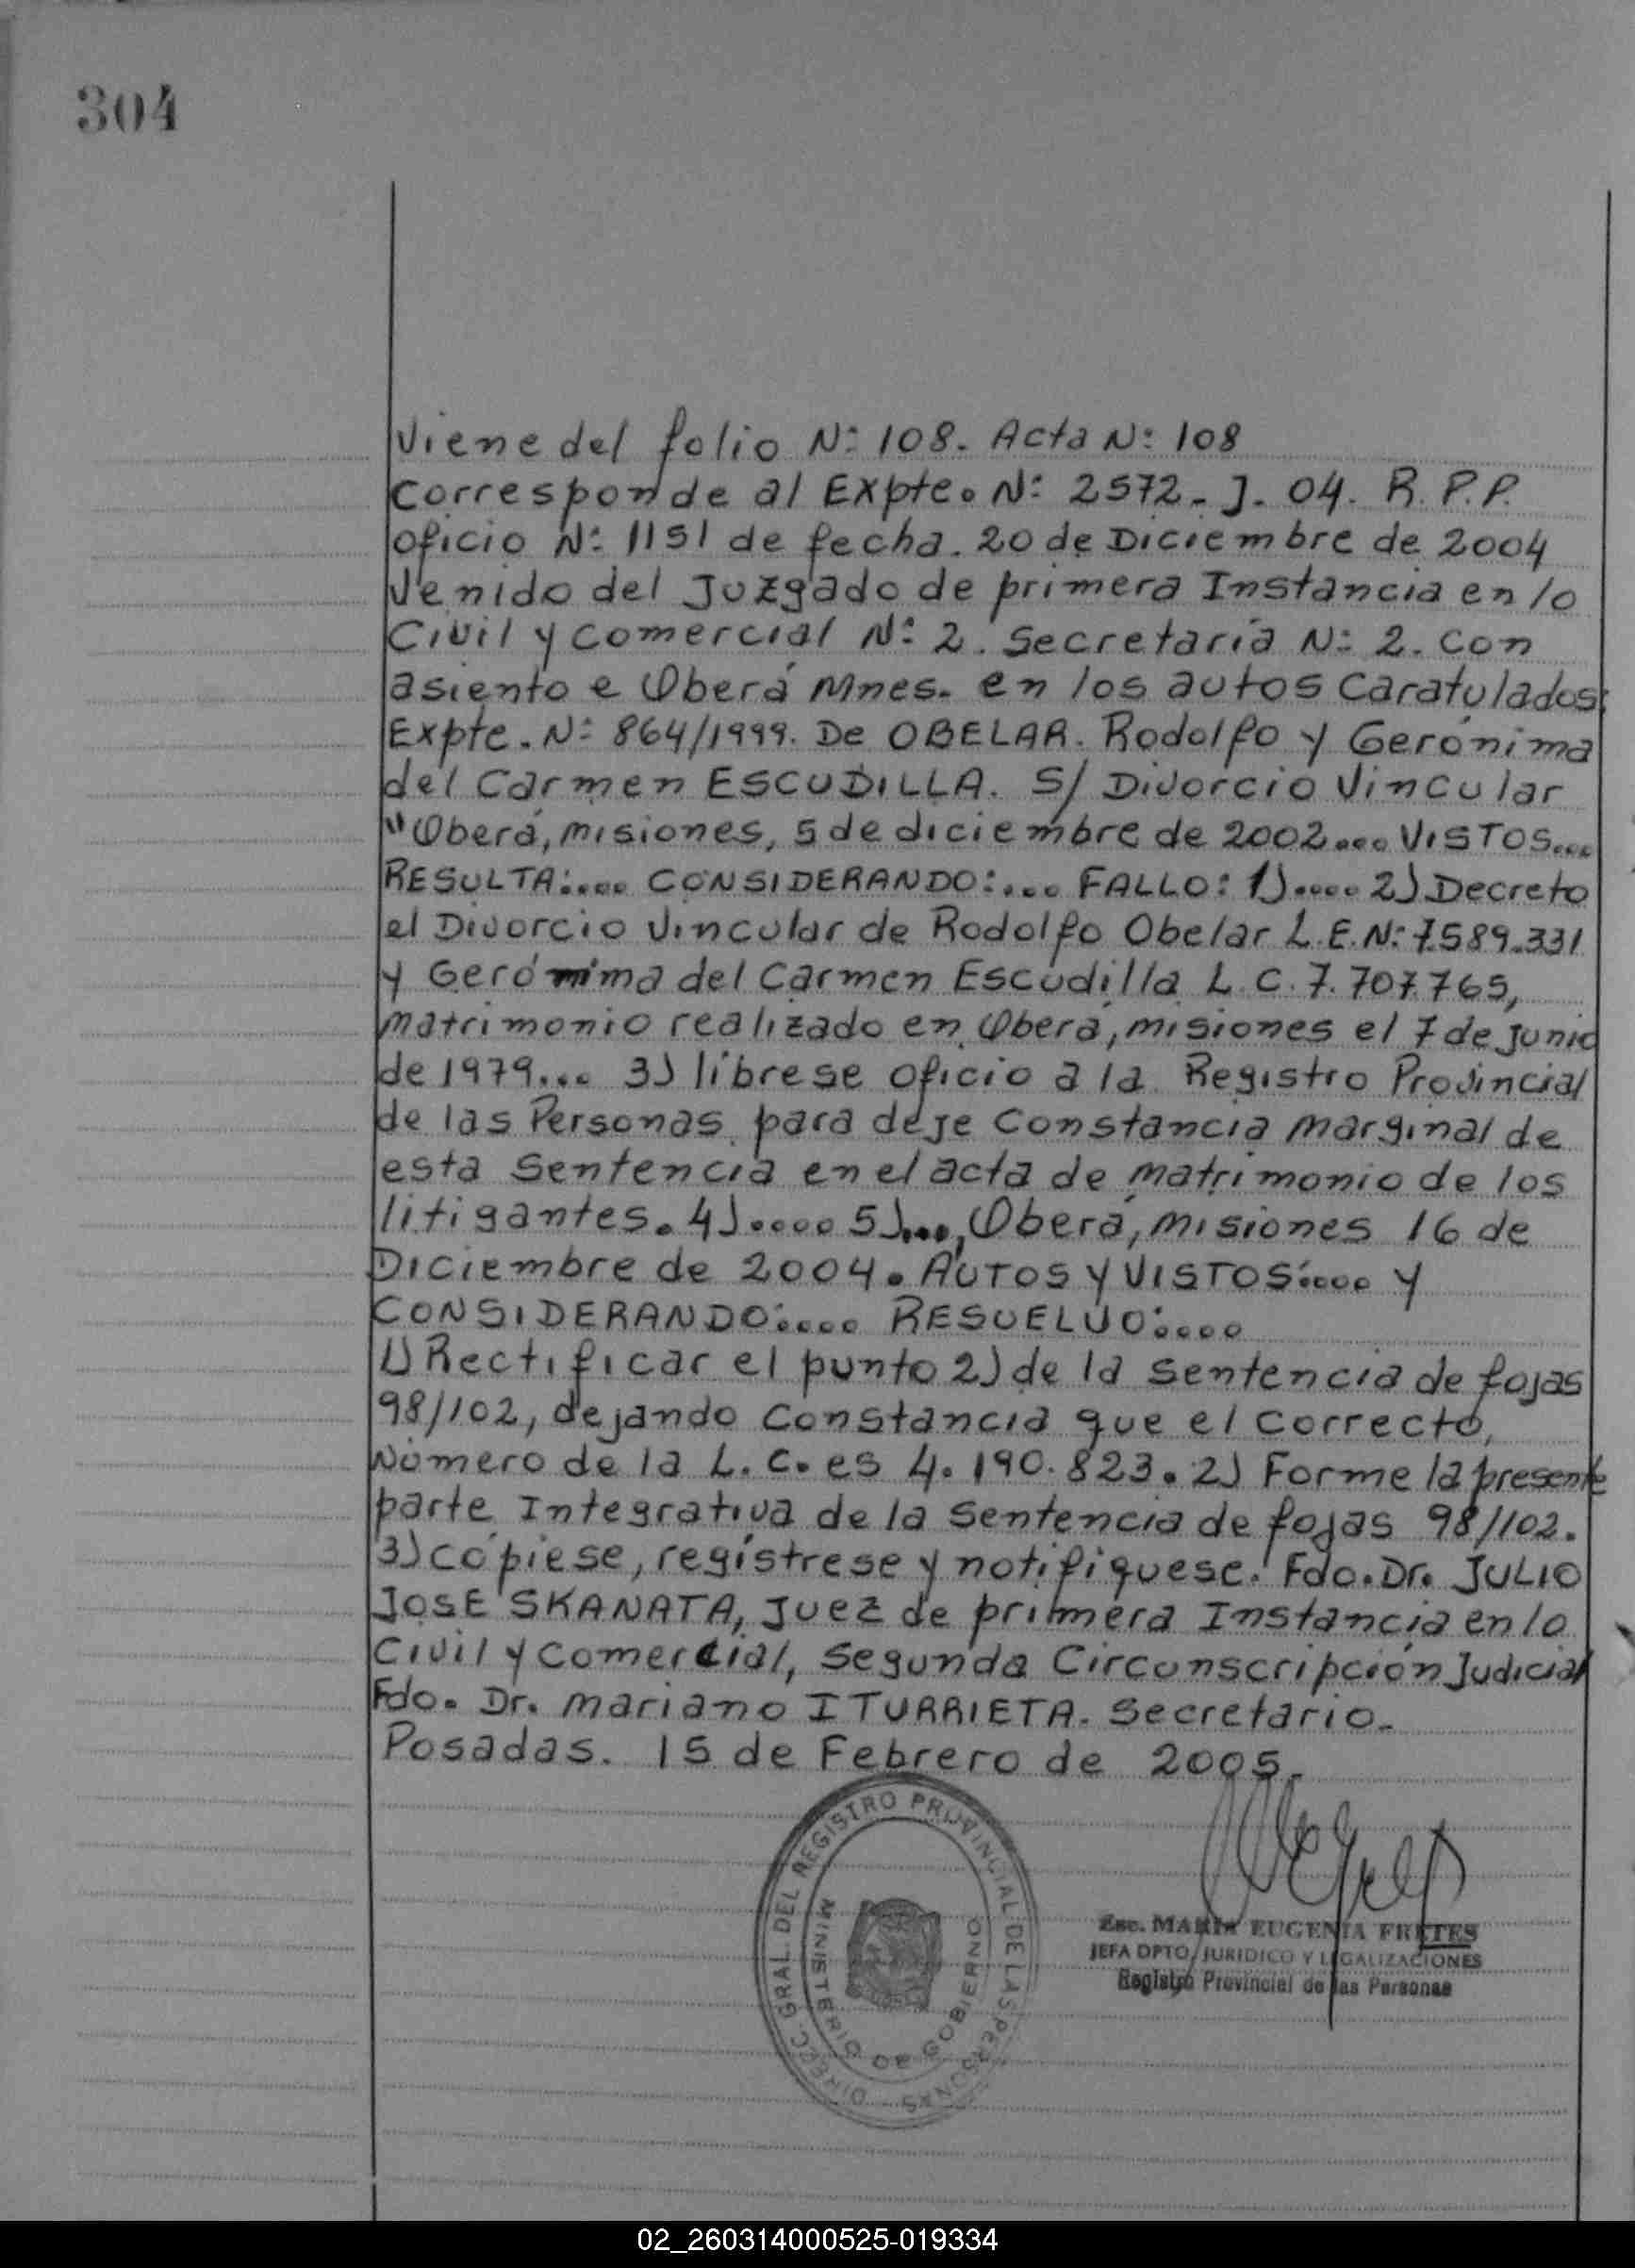 304
Viene del folio N: 108. Acta N: 108
Corresponde al Expte. N: 2572. J. 04. R. P. P.
oficio N: 1151 de fecha. 20 de Diciembre de 2004
Venido del Juzgado de primera Instancia en lo
Civil y comercial N: 2. Secretaría N: 2. con
asiento e Oberá Mnes. en los autos Caratulados:
Expte. N: 864/1999. De OBELAR. Rodolfo y Gerónima
del Carmen ESCUDILLA. S/ Divorcio Vincular
"Oberá, misiones, 5 de diciembre de 2002.... VISTOS....
RESULTA:.... CONSIDERANDO:.... FALLO: 1)..... 2) Decreto
el Divorcio Vincular de Rodolfo Obelar L.E.N: 7.589.331
y Gerónima del Carmen Escudilla L. C. 7. 707.765,
matrimonio realizado en Oberá, misiones el 7 de junio
de 1979.... 3) líbrese oficio a la Registro Provincial
de las Personas para deje Constancia marginal de
esta Sentencia en el acta de matrimonio de los
litigantes. 4)..... 5)...., Oberá, misiones 16 de
Diciembre de 2004. AUTOS y VISTOS:.... y
CONSIDERANDO:.... RESUELVO:....
1) Rectificar el punto 2) de la Sentencia de fojas
98/102, dejando Constancia que el correcto,
Número de la L. C. es 4. 190. 823. 2) Forme la presente
parte Integrativa de la Sentencia de fojas 98/102.
3) cópiese, regístrese y notifíquese. Fdo. Dr. JULIO
JOSE SKANATA, Juez de primera Instancia en lo
Civil y Comercial, Segunda Circunscripción Judicial
Fdo. Dr. Mariano ITURRIETA. Secretario.
Posadas. 15 de Febrero de 2005.
DIRECC. GRAL. DEL REGISTRO PROVINCIAL DE LAS PERSONAS
MINISTERIO DE GOBIERNO
Esc. MARIA EUGENIA FRETES
JEFA DPTO. JURIDICO Y LEGALIZACIONES
Registro Provincial de las Personas
02_260314000525-019334